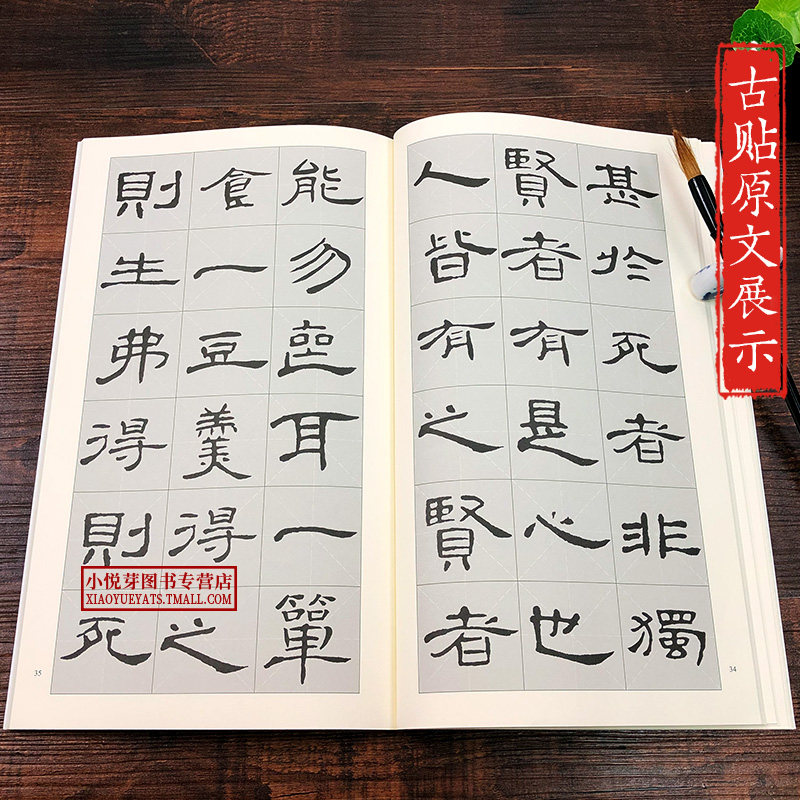 甚於死者非獨
賢者有是心也
人皆有之賢者
34
能勿喪耳一簞
食一豆羹得之
則生弗得則死
35
古贴原文展示
小悦芽图书专营店
XIAOYUEYATS.TMALL.COM